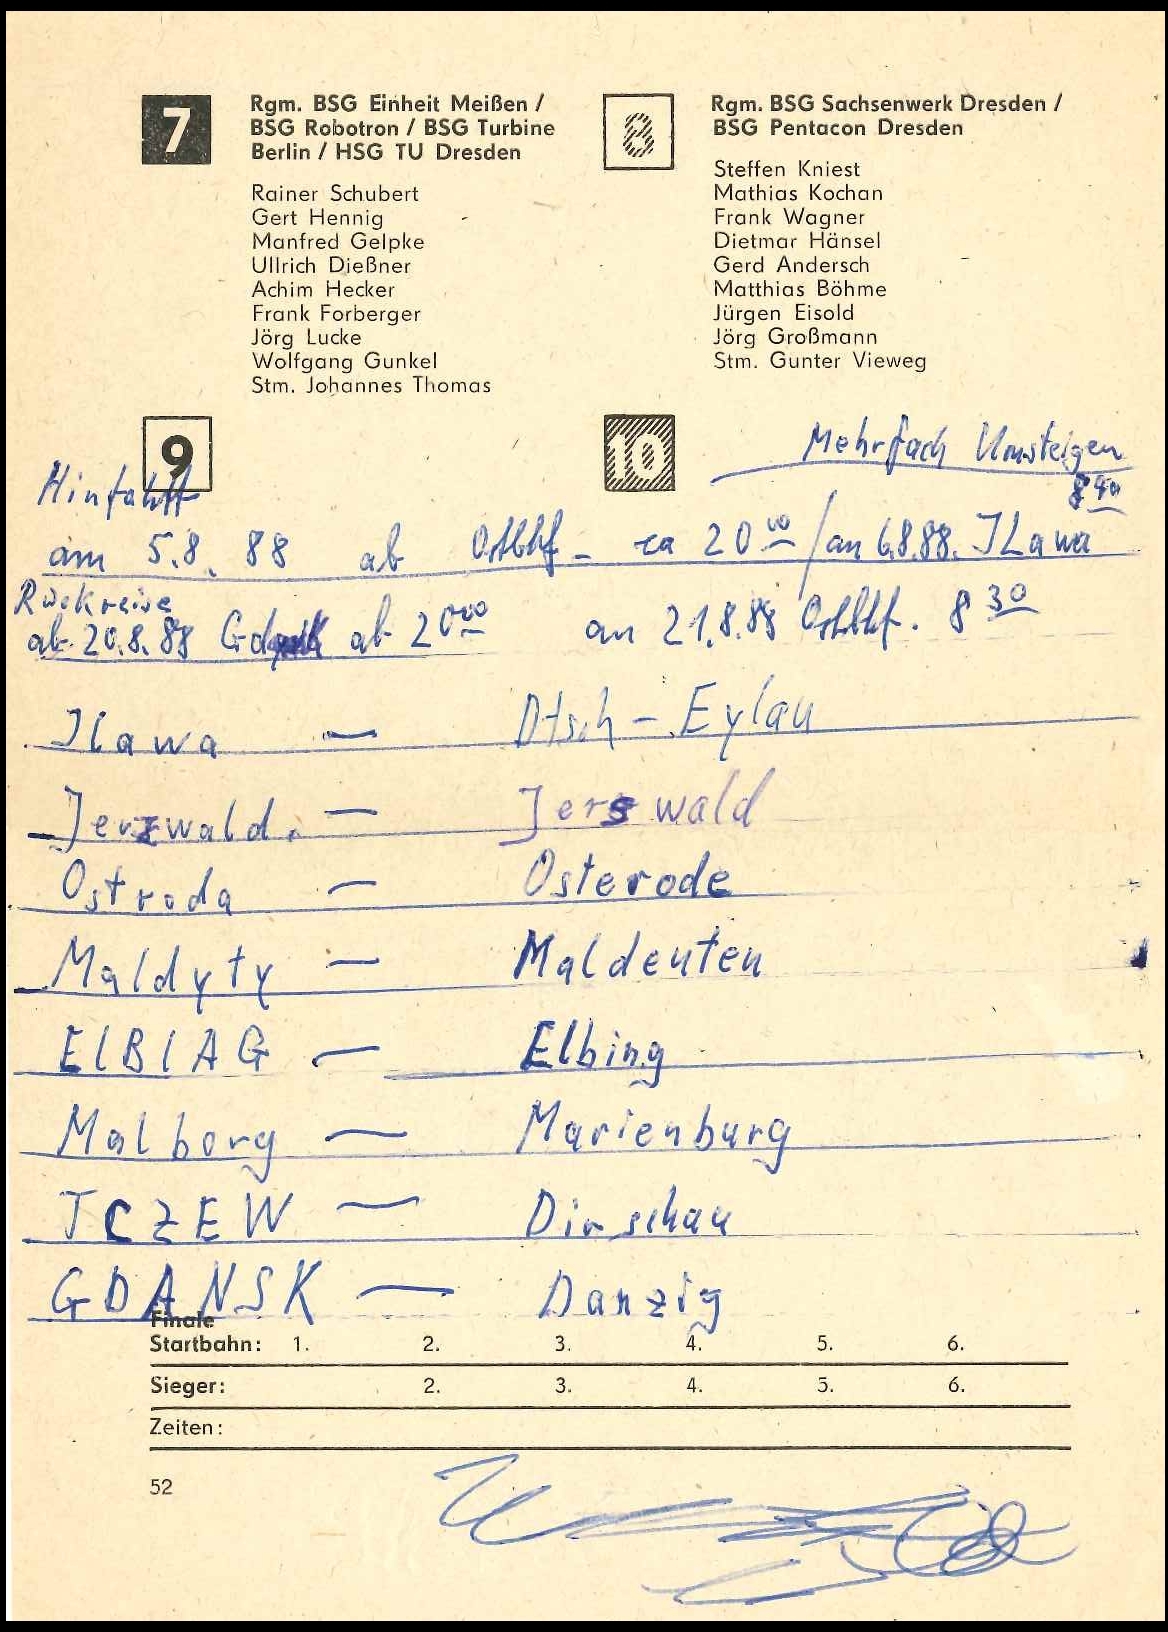 7
Rgm. BSG Einheit Meißen /
BSG Robotron / BSG Turbine
Berlin / HSG TU Dresden
Rainer Schubert
Gert Hennig
Manfred Gelpke
Ullrich Dießner
Achim Hecker
Frank Forberger
Jörg Lucke
Wolfgang Gunkel
Stm. Johannes Thomas
8
Rgm. BSG Sachsenwerk Dresden /
BSG Pentacon Dresden
Steffen Kniest
Mathias Kochan
Frank Wagner
Dietmar Hänsel
Gerd Andersch
Matthias Böhme
Jürgen Eisold
Jörg Großmann
Stm. Gunter Vieweg
9
10
Mehrfach Umsteigen
Hinfahrt
8 40
am 5.8. 88 ab Ostbhf - ca 20 00 / an 6.8.88. ILawa
Rückreise
ab 20.8.88 Gdansk ab 20 00 an 21.8.88 Ostbhf. 8 30
Ilawa — Dtsch - Eylau
Jerzwald. — Jerswald
Ostroda — Osterode
Maldyty — Maldeuten
ElBlAG — Elbing
Malborg — Marienburg
TCZEW — Dirschau
GDANSK — Danzig
Finale
Startbahn: 1. 2. 3. 4. 5. 6.
Sieger: 2. 3. 4. 5. 6.
Zeiten:
52